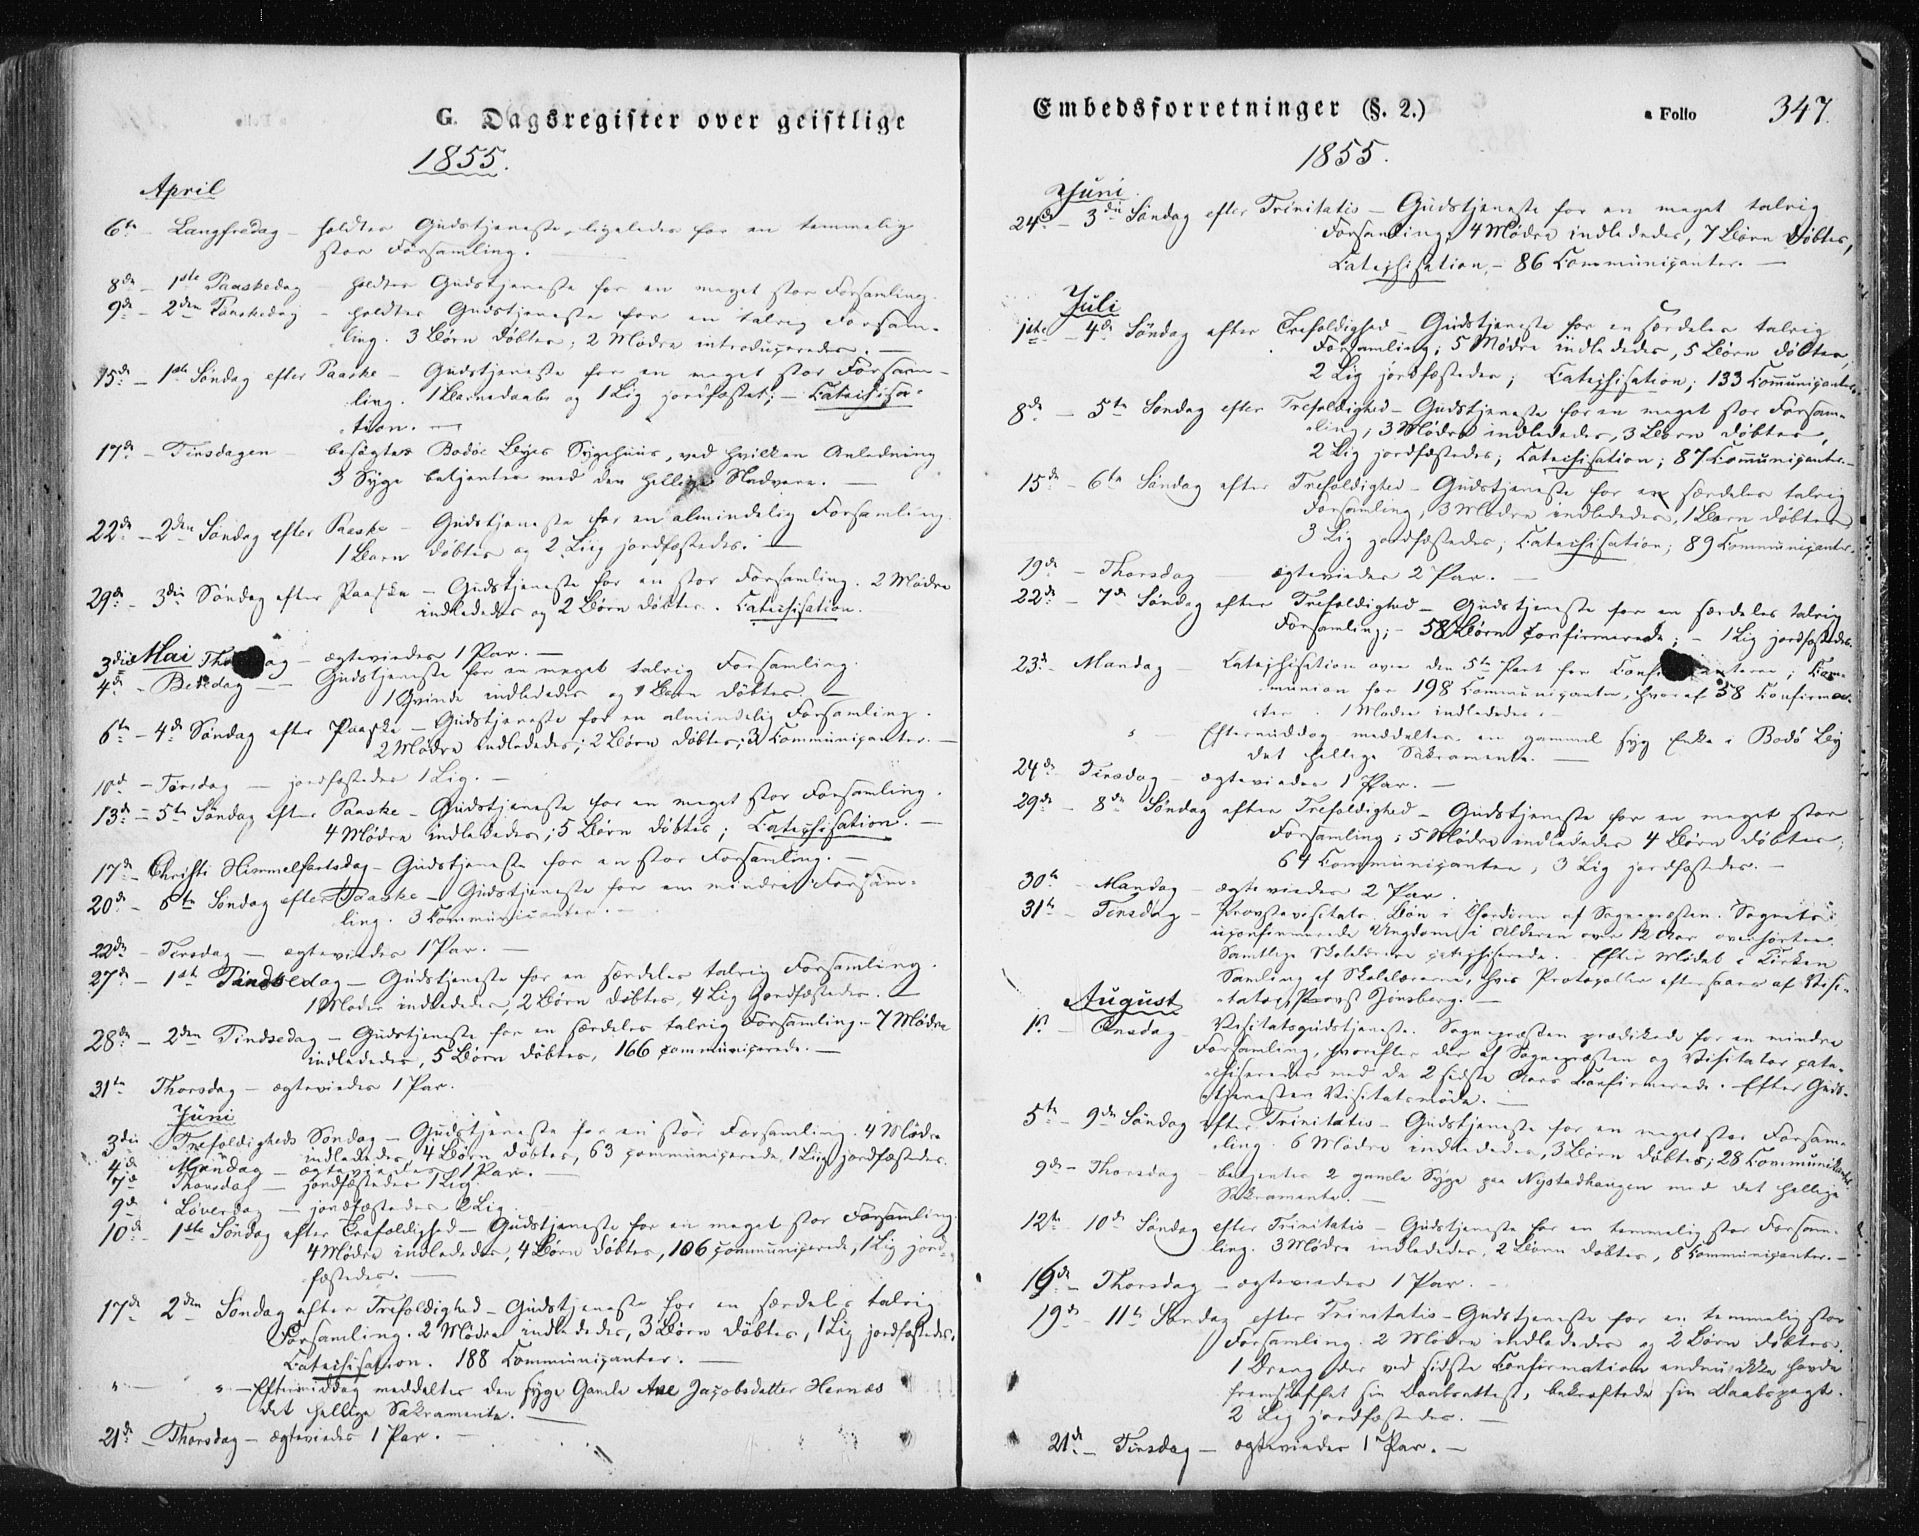 G. Dagsregister over geistlige
1855.
April
6te – Langfredag – holdtes Gudstjeneste, ligeledes for en temmelig
stor Forsamling.
8de – 1ste Paaskedag – holdtes Gudstjeneste for en meget stor Forsamling.
9de – 2den Paaskedag – holdtes Gudstjeneste for en talrig Forsam-
ling. 3 Børn døbtes; 2 Mødre introduceredes. –
15de – 1ste Søndag efter Paaske – Gudstjeneste for en meget stor Forsam-
ling. 1 Barnedaab og 1 Lig jordfæstet; – Catechisa-
tion. –
17de – Tirsdagen – besøgtes Bodøe Byes Sygehuus, ved hvilken Anledning
3 Syge betjentes med den hellige Nadvere. –
22de – 2den Søndag efter Paaske – Gudstjeneste for en almindelig Forsamling.
1 Barn døbtes og 2 Liig jordfæstedes. –
29de – 3die Søndag efter Paaske – Gudstjeneste for en stor Forsamling. 2 Mødre
indledede og 2 Børn døbtes. Catechisation.
Mai
3die Thorsdag – ægteviedes 1 Par. –
4de – Bededag – Gudstjeneste for en meget talrig Forsamling.
1 Qvinde indlededes og 1 Barn døbtes. –
6te – 4de Søndag efter Paaske – Gudstjeneste for en almindelig Forsamling.
2 Mødre indlededes; 2 Børn døbtes; 3 Communicanter. –
10de – Torsdag – jordfæstedes 1 Lig. –
13de – 5te Søndag efter Paaske – Gudstjeneste for en meget stor Forsamling.
4 Mødre indlededes; 5 Børn døbtes; Catechisation. –
17de – Christi Himmelfartsdag – Gudstjeneste for en stor Forsamling. –
20de – 6te Søndag efter Paaske – Gudstjeneste for en mindre Forsam-
ling. 3 Communicanter. –
22de – Tirsdag – ægteviedes 1 Par. –
27de – 1ste Pindsedag – Gudstjeneste for en særdeles talrig Forsamling.
1 Moder indlededes, 2 Børn døbtes, 4 Lig jordfæstedes. –
28de – 2den Pindsedag – Gudstjeneste for en særdeles talrig Forsamling – 7 Mødre
indlededes, 5 Børn døbtes, 166 communicerede. –
31te Thorsdag – ægteviedes 1 Par.
Juni
3die Trefoldigheds Søndag – Gudstjeneste for en stor Forsamling. 4 Mødre
indlededes, 4 Børn døbtes, 63 communicerede, 1 Liig jordfæstedes.
4de Mandag – ægteviedes 1 Par. –
7de Thorsdag – jordfæstedes 1 Lig.
9de Løverdag – jordfæstedes Lig.
10de – 1ste Søndag efter Trefoldighed – Gudstjeneste for en meget stor Forsamling.
4 Mødre indlededes, 4 Børn døbtes, 106 communicerede, 1 Lig jord-
fæstedes. –
17de 2den Søndag efter Trefoldighed – Gudstjeneste for en særdeles talrig
Forsamling. 2 Mødre indlededes, 3 Børn døbtes, 1 Lig jordfæstedes.
Catechisation. 188 Communicanter. –
" – " – Eftermiddag meddeltes den syge Gamle Ane Jacobsdatter Hernæs
det hellige Sakramente. –
21de – Thorsdag – ægteviedes 1 Par. –
Embedsforretninger (§. 2.)
a Folio 347.
1855.
Juni.
24de – 3die Søndag efter Trinitatis – Gudstjeneste for en meget talrig
Forsamling, 4 Mødre indlededes, 7 Børn døbtes,
Catechisation, – 86 Communicanter. –
Juli
1ste – 4de Søndag efter Trefoldighed – Gudstjeneste for en særdeles talrig
Forsamling; 5 Mødre indlededes, 5 Børn døbtes,
2 Lig jordfæstedes; Catechisation; 133 Communicanter.
8de – 5te Søndag efter Trefoldighed – Gudstjeneste for en meget stor Forsam-
ling; 3 Mødre indlededes, 3 Børn døbtes,
2 Lig jordfæstedes; Catechisation; 87 Communicanter. –
15de – 6te Søndag efter Trefoldighed – Gudstjeneste for en særdeles talrig
Forsamling, 3 Mødre indlededes, 1 Barn døbtes
3 Lig jordfæstedes; Catechisation; 89 Communicanter.
19de – Thorsdag – ægteviedes 2 Par. –
22de – 7de Søndag efter Trefoldighed – Gudstjeneste for en særdeles talrig
Forsamling; – 58 Børn confirmerede; – 1 Lig jordfæstedes.
23de – Mandag – Catechisation over den 5te Part for Confirmanterne; Com-
munion for 198 Communicanter, hvoraf 58 Confirmer-
ter. 1 Moder indlededes. –
" – Eftermiddag meddeltes en gammel syg Enke i Bodø By
det hellige Sakramente. –
24de Tirsdag – ægteviedes 1 Par. –
29de – 8de Søndag efter Trefoldighed – Gudstjeneste for en meget stor
Forsamling; 5 Mødre indlededes 4 Børn døbtes;
64 Communicanter, 3 Lig jordfæstedes. –
30te – Mandag – ægteviedes 2 Par.
31te – Tirsdag – Provstevisitats. Bøn i Chordøren af Sognepræsten. Sognets
uconfirmerede Ungdom i Alderen over 12 Aar overhørtes.
Samtlige Skolebørn catechiserede. – Efter Mødet i Kirken
Samling af Skolelærerne, hvis Protocoller eftersaaes af Visi-
tator, Provst Jonsberg. –
August
1ste – Onsdag – Visitatsgudstjeneste. Sognepræsten prædikede for en mindre
Forsamling, hvorefter der af Sognepræsten og Visitator cate-
chiseredes med de 2 sidste Aars Confirmerede. Efter Guds-
tjenesten Visitatsmøde. –
5te – 9de Søndag efter Trinitatis – Gudstjeneste for en meget stor Forsam-
ling. 6 Mødre indlededes, 3 Børn døbtes; 28 Communikanter.
9de – Thorsdag – betjentes 2 gamle Syge paa Nystadhaugen med det hellige
Sakramente. –
12te 10de Søndag efter Trinitatis – Gudstjeneste for en temmelig stor Forsam-
ling. 3 Mødre indlededes, 2 Børn døbtes, 8 Communicanter. –
16de – Thorsdag – ægteviedes 1 Par. –
19de – 11te Søndag efter Trinitatis – Gudstjeneste for en temmelig stor
Forsamling. 2 Mødre indlededes og 2 Børn døbtes.
1 Dreng der ved sidste Confirmation endnu ikke havde
fremskaffet sin Daabsattest, bekræftede sin Daabspagt.
2 Lig jordfæstedes. –
21de – Tirsdag – ægteviedes 1 Par. –